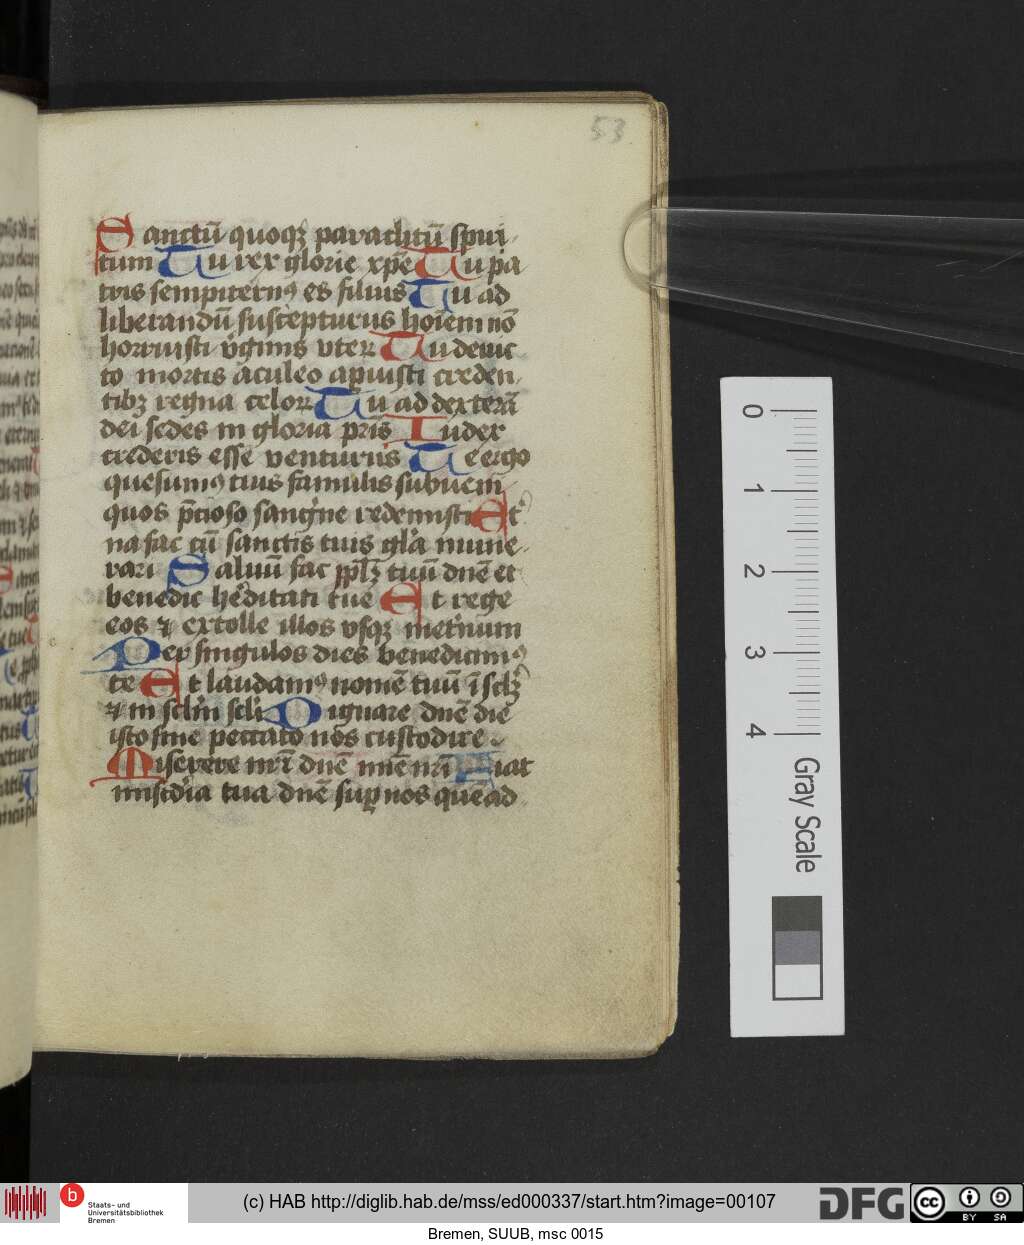 53
Sanctū quoqꝫ paraclitū spūi
tum Tu rex glorie xp̄e Tu pa
tris sempiternꝰ es filius Tu ad
liberandū suscepturus hoīem nō
horruisti v̓ginis vterꝫ Tu deuic
to mortis aculeo apuisti creden
tibꝫ regna celoꝝ Tu ad dexterā
dei sedes in gloria pr̄is Iudex
crederis esse venturus Te ergo
quesumꝰ tuis famulis subueni
quos p̄cioso sangⁱne redemisti Et̓
na fac cū sanctis tuis gl̓a mune
rari Saluū fac pp̄lꝫ tuū dn̄e et
benedic he̓ditati tue Et rege
eos ⁊ extolle illos vsqꝫ inet̓num
Per singulos dies benedicimꝰ
te Et laudamꝰ nomē tuū ī sclꝫ
⁊ in sclm̄ scli Dignare dn̄e die
isto sine peccato nos custodire
Miserere nr̄i dn̄e mie nr̄i Fiat
misc̓dia tua dn̄e suꝑ nos quēad
0
1
2
3
4
Gray Scale
b
Staats- und
Universitätsbibliothek
Bremen
(c) HAB http://diglib.hab.de/mss/ed000337/start.htm?image=00107
DFG
cc BY SA
Bremen, SUUB, msc 0015